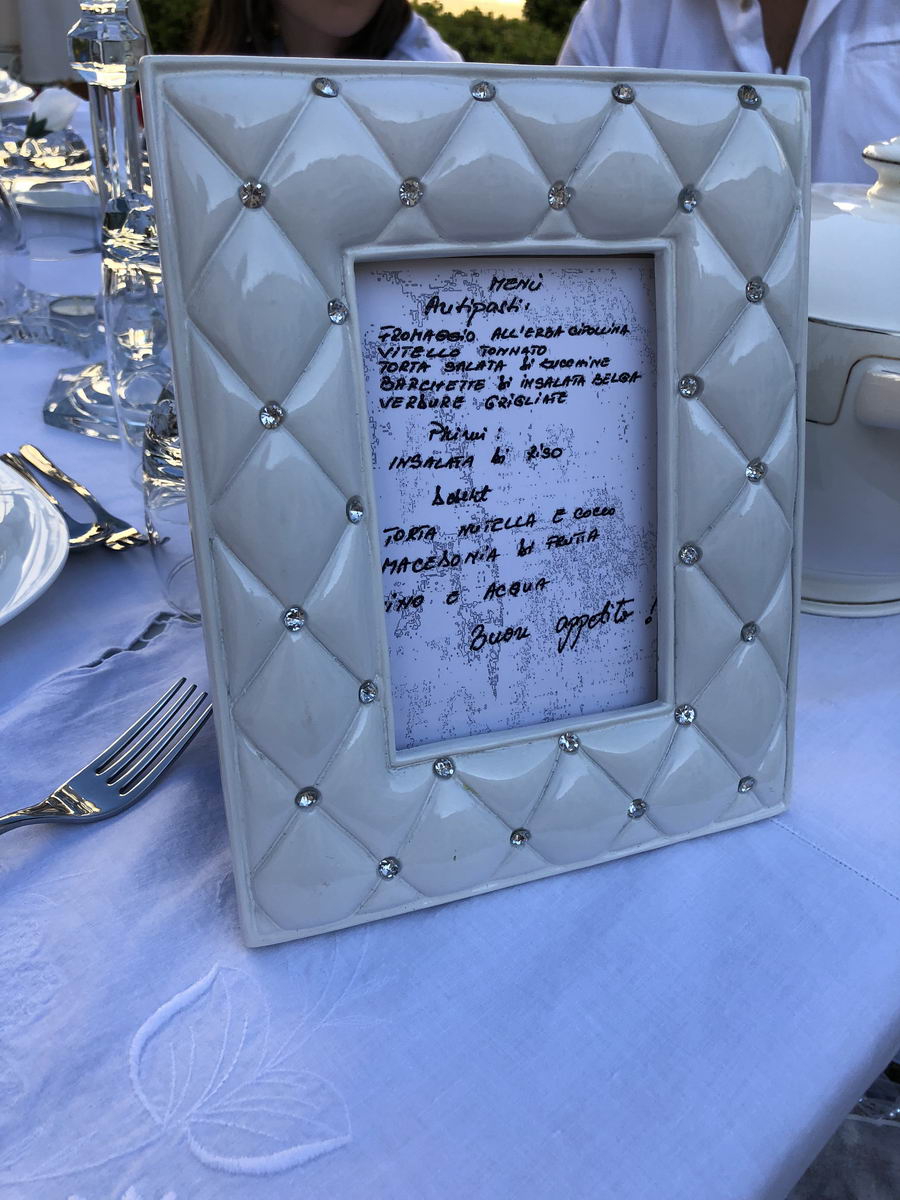 MENÙ
Antipasti:
FROMAGGIO ALL'ERBA CIPOLLINA
VITELLO TONNATO
TORTA SALATA di ZUCCHINE
BARCHETTE di INSALATA BELGA
VERDURE GRIGLIATE
Primi:
INSALATA di RISO
Dolci
TORTA NUTELLA E COCCO
MACEDONIA di FRUTTA
INO E ACQUA
Buon appetito!